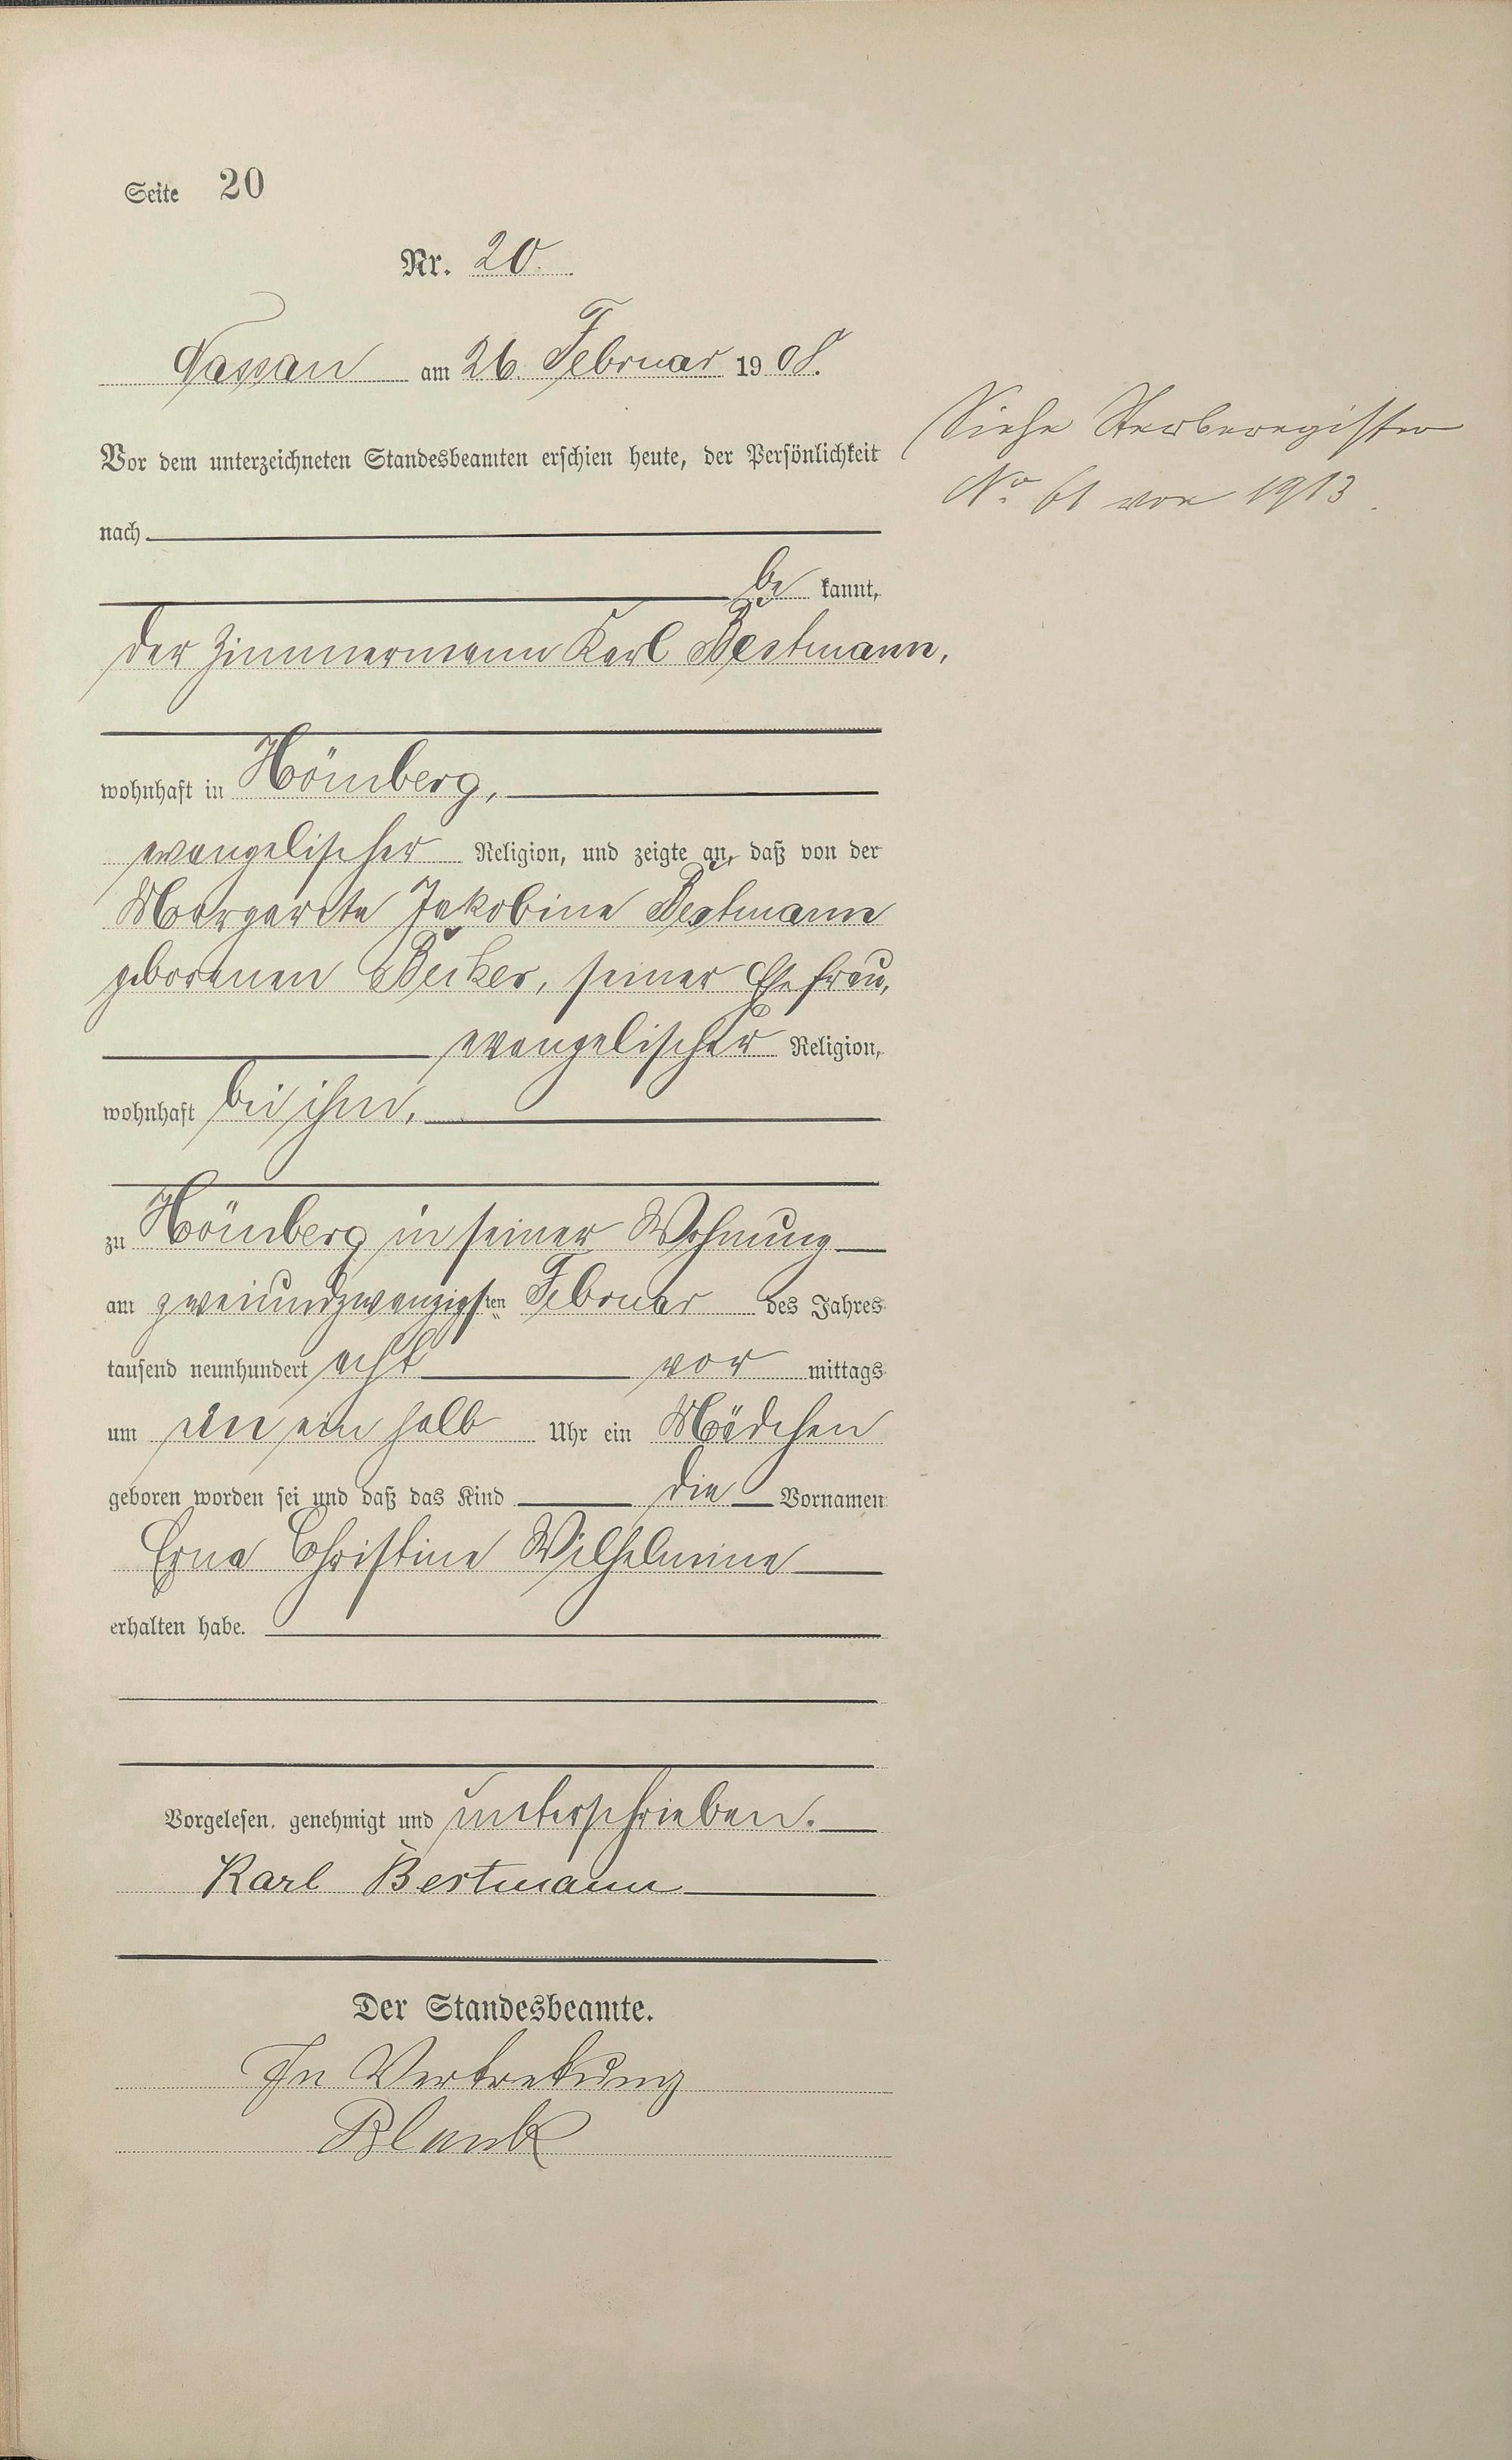 Seite 20
Nr. 20.
Nassau am 26. Februar 1908.
Vor dem unterzeichneten Standesbeamten erschien heute, der Persönlichkeit
nach
be kannt,
der Zimmermann Karl Bestmann,
wohnhaft in Hömberg,
evangelischer Religion, und zeigte an, daß von der
Margarete Jakobine Bestmann
geborenen Becker, seiner Ehefrau,
evangelischer Religion,
wohnhaft bei ihm,
zu Hömberg in seiner Wohnung
am zweiundzwanzigsten Februar des Jahres
tausend neunhundert acht vor mittags
um ein halb Uhr ein Mädchen
geboren worden sei und daß das Kind die Vornamen
Erna Christine Wilhelmine
erhalten habe.
Vorgelesen, genehmigt und unterschrieben.
Karl Bestmann
Der Standesbeamte.
In Vertretung
Blank
Siehe Sterberegister
No 61 von 1913.